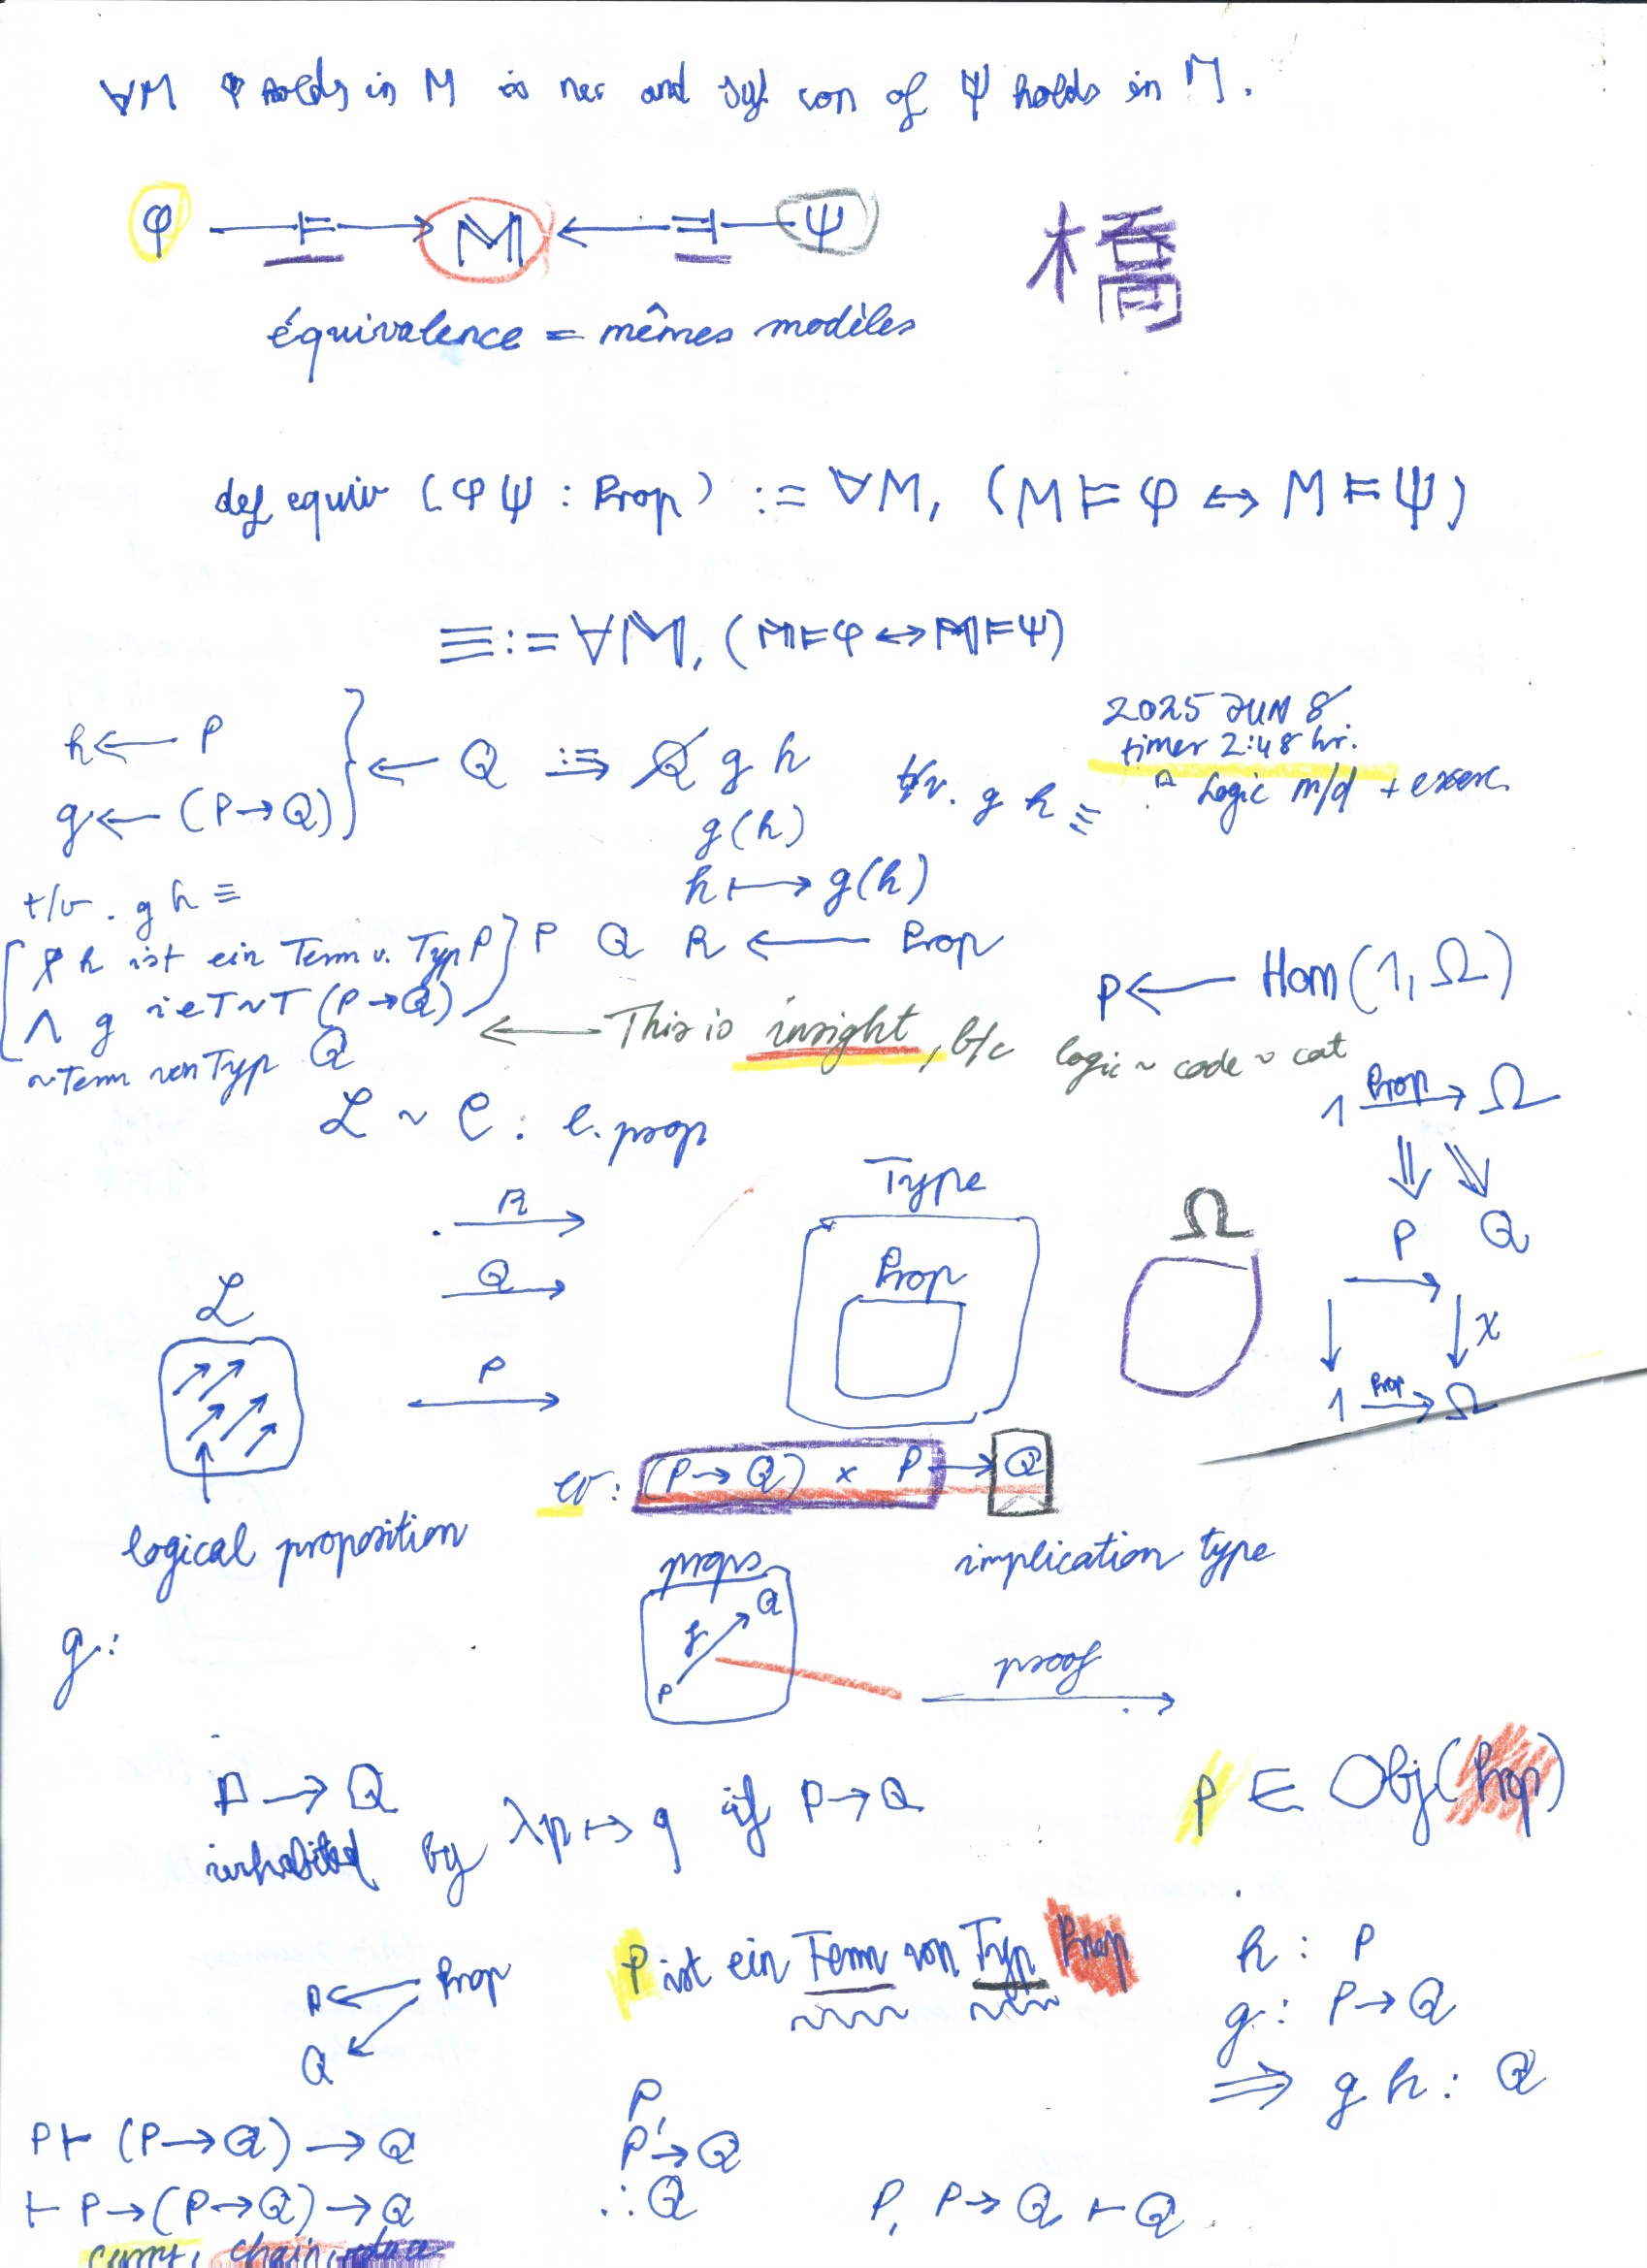 ∀M φ holds in M is nec and suf con of Ψ holds in M.
φ ⊨ → M ← ⊨ Ψ
橋
équivalence = mêmes modèles
def equiv (φ Ψ : Prop) := ∀M, (M ⊨ φ ↔ M ⊨ Ψ)
≡ := ∀M, (M ⊨ φ ↔ M ⊨ Ψ)
2025 JUN 8
timer 2:48 hr.
Logic m/d + exerc.
h ← P
g ← (P → Q)
} ← Q :⇒ g h
g(h)
h ↦ g(h)
t/v. g h ≡
t/v. g h ≡
[ h ist ein Term v. Typ P
∧ g i e T v T (P → Q) ]
~ Term von Typ Q
P Q R ← Prop
P ← Hom(1, Ω)
← This is insight, b/c logic ~ code ~ cat
ℒ ~ C : l. prop
1 Prop → Ω
⇓ ⇘
P Q
→
↓ ↓ χ
1 Prop → Ω
R
Q
P
Type
Prop
Ω
ℒ
logical proposition
ev: (P → Q) × P → Q
implication type
props
P f Q
proof
g:
P → Q
inhabited by λp ↦ q if P → Q
P ∈ Obj(Prop)
P ist ein Term von Typ Prop
P ← Prop
Q
h : P
g : P → Q
⇒ g h : Q
P ⊢ (P → Q) → Q
⊢ P → (P → Q) → Q
P,
P → Q
∴ Q
P, P → Q ⊢ Q
curry, chain,